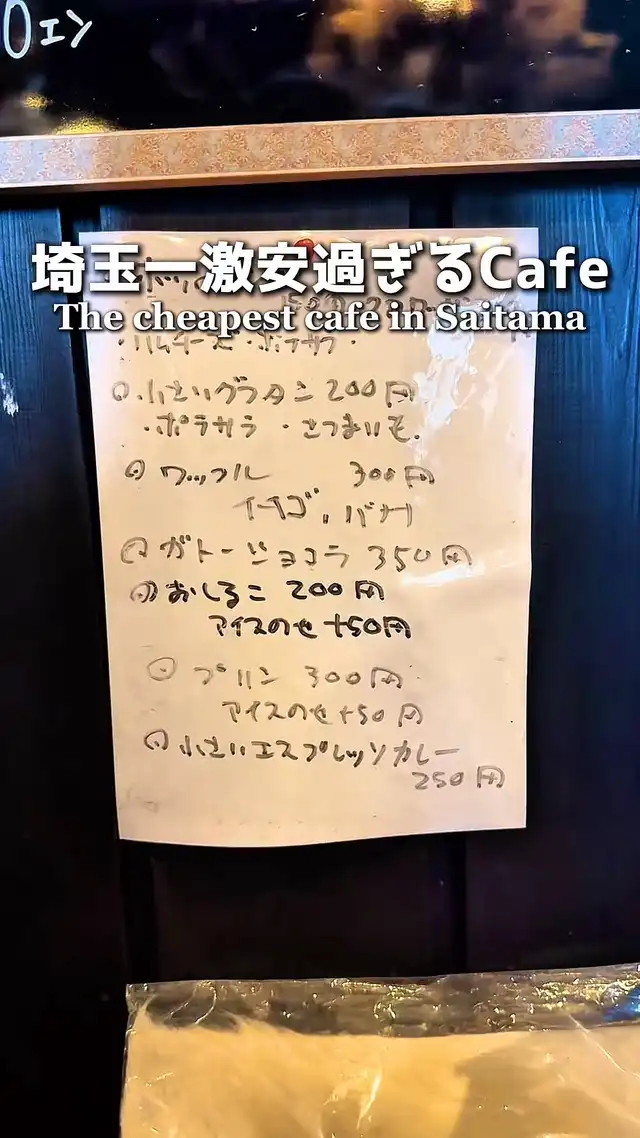 0エン
埼玉一激安過ぎるCafe
The cheapest cafe in Saitama
・ハムチーズ・ポテサラ・
小さいグラタン 200円
・ポテサラ ・さつまいも.
ワッフル 300円
イチゴ, バナナ
ガトーショコラ 350円
おしるこ 200円
アイスのせ +50円
プリン 300円
アイスのせ +50円
小さいエスプレッソカレー
250円